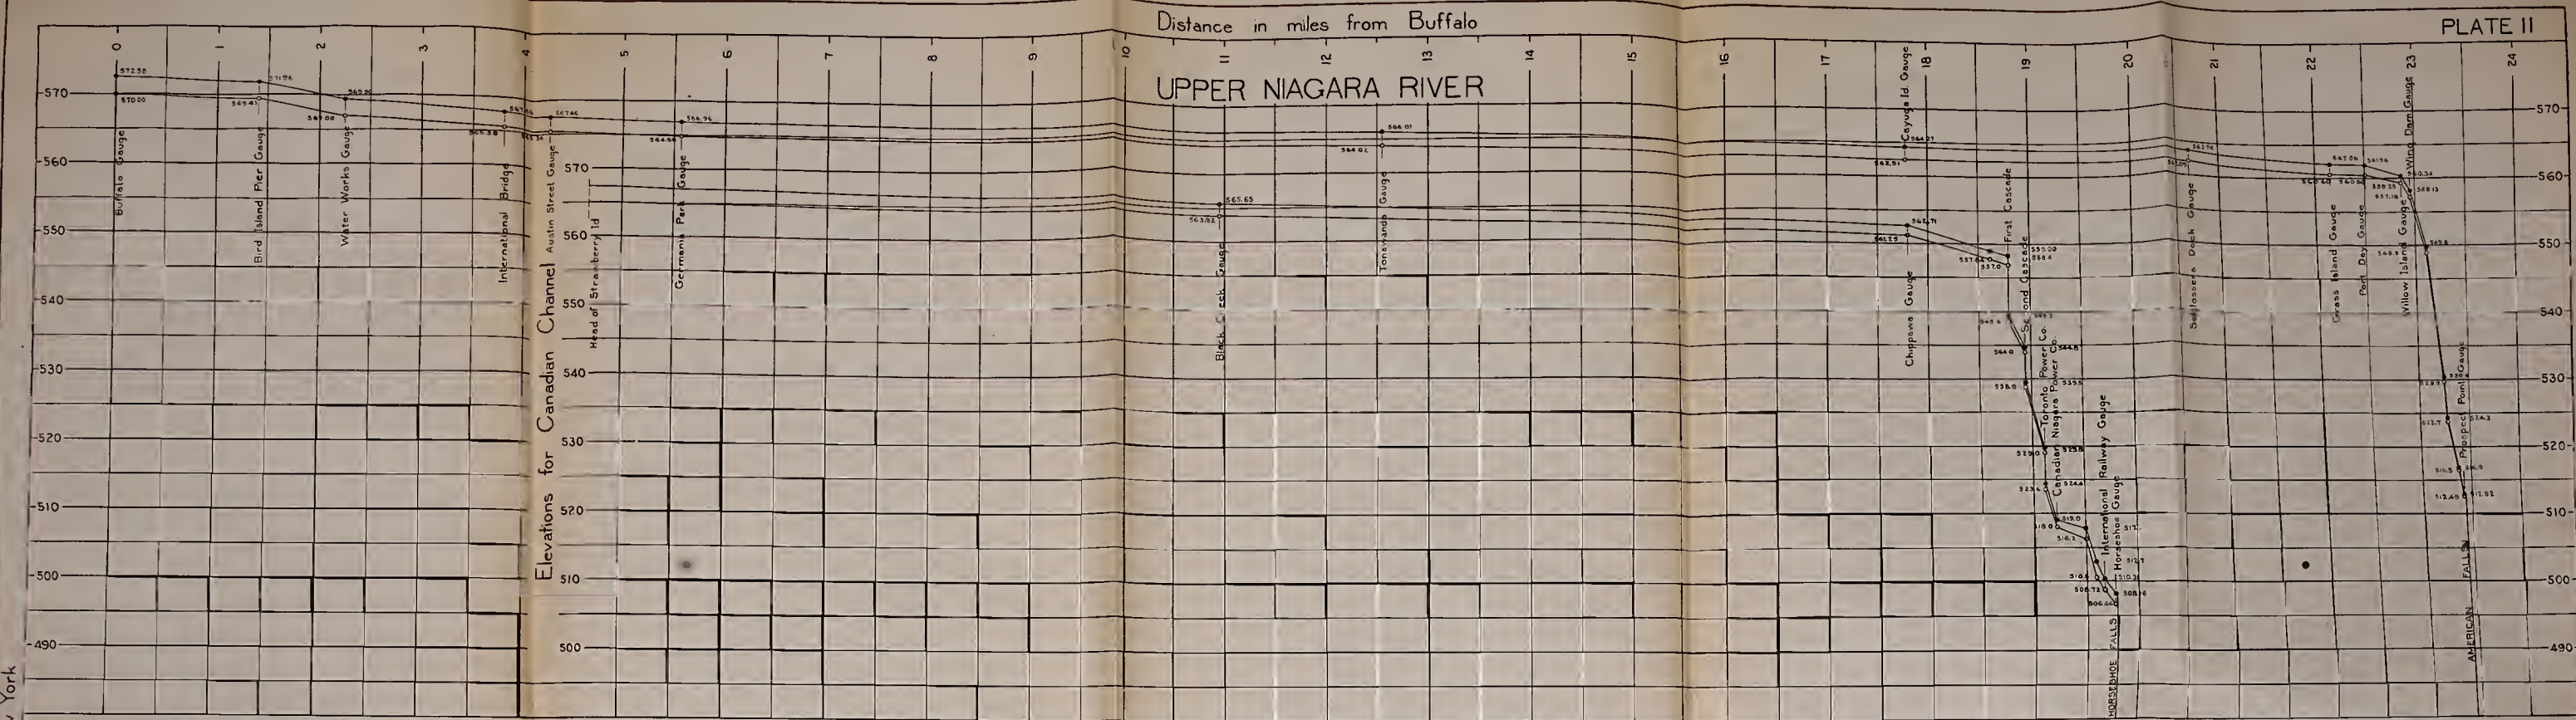 Distance in miles from Buffalo
PLATE II
0 1 2 3 4 5 6 7 8 9 10 11 12 13 14 15 16 17 18 19 20 21 22 23 24
UPPER NIAGARA RIVER
570
560
550
540
530
520
510
500
490
Elevations for Canadian Channel
570
560
550
540
530
520
510
500
570
560
550
540
530
520
510
500
490
Buffalo Gauge
Bird Island Pier Gauge
Water Works Gauge
International Bridge
Austin Street Gauge
Head of Strawberry Id
Germania Park Gauge
Black Creek Gauge
Tonawanda Gauge
Chippawa Gauge
Cayuga Id. Gauge
First Cascade
Second Cascade
Toronto Power Co.
Canadian Niagara Power Co.
International Railway Gauge
Horseshoe Gauge
HORSESHOE FALLS
Schlossers Dock Gauge
Grass Island Gauge
Port Day Gauge
Willow Island Gauge
Wing Dam Gauge
Prospect Point Gauge
AMERICAN FALLS
572.58
570.00
571.26
569.00
567.66
566.96
566.01
564.02
565.65
563.82
562.71
561.25
559.00
558.4
557.0
544.8
544.0
519.0
516.2
510.21
508.72
506.66
562.06
560.34
558.13
524.3
523.7
516.5
512.48
512.02
York